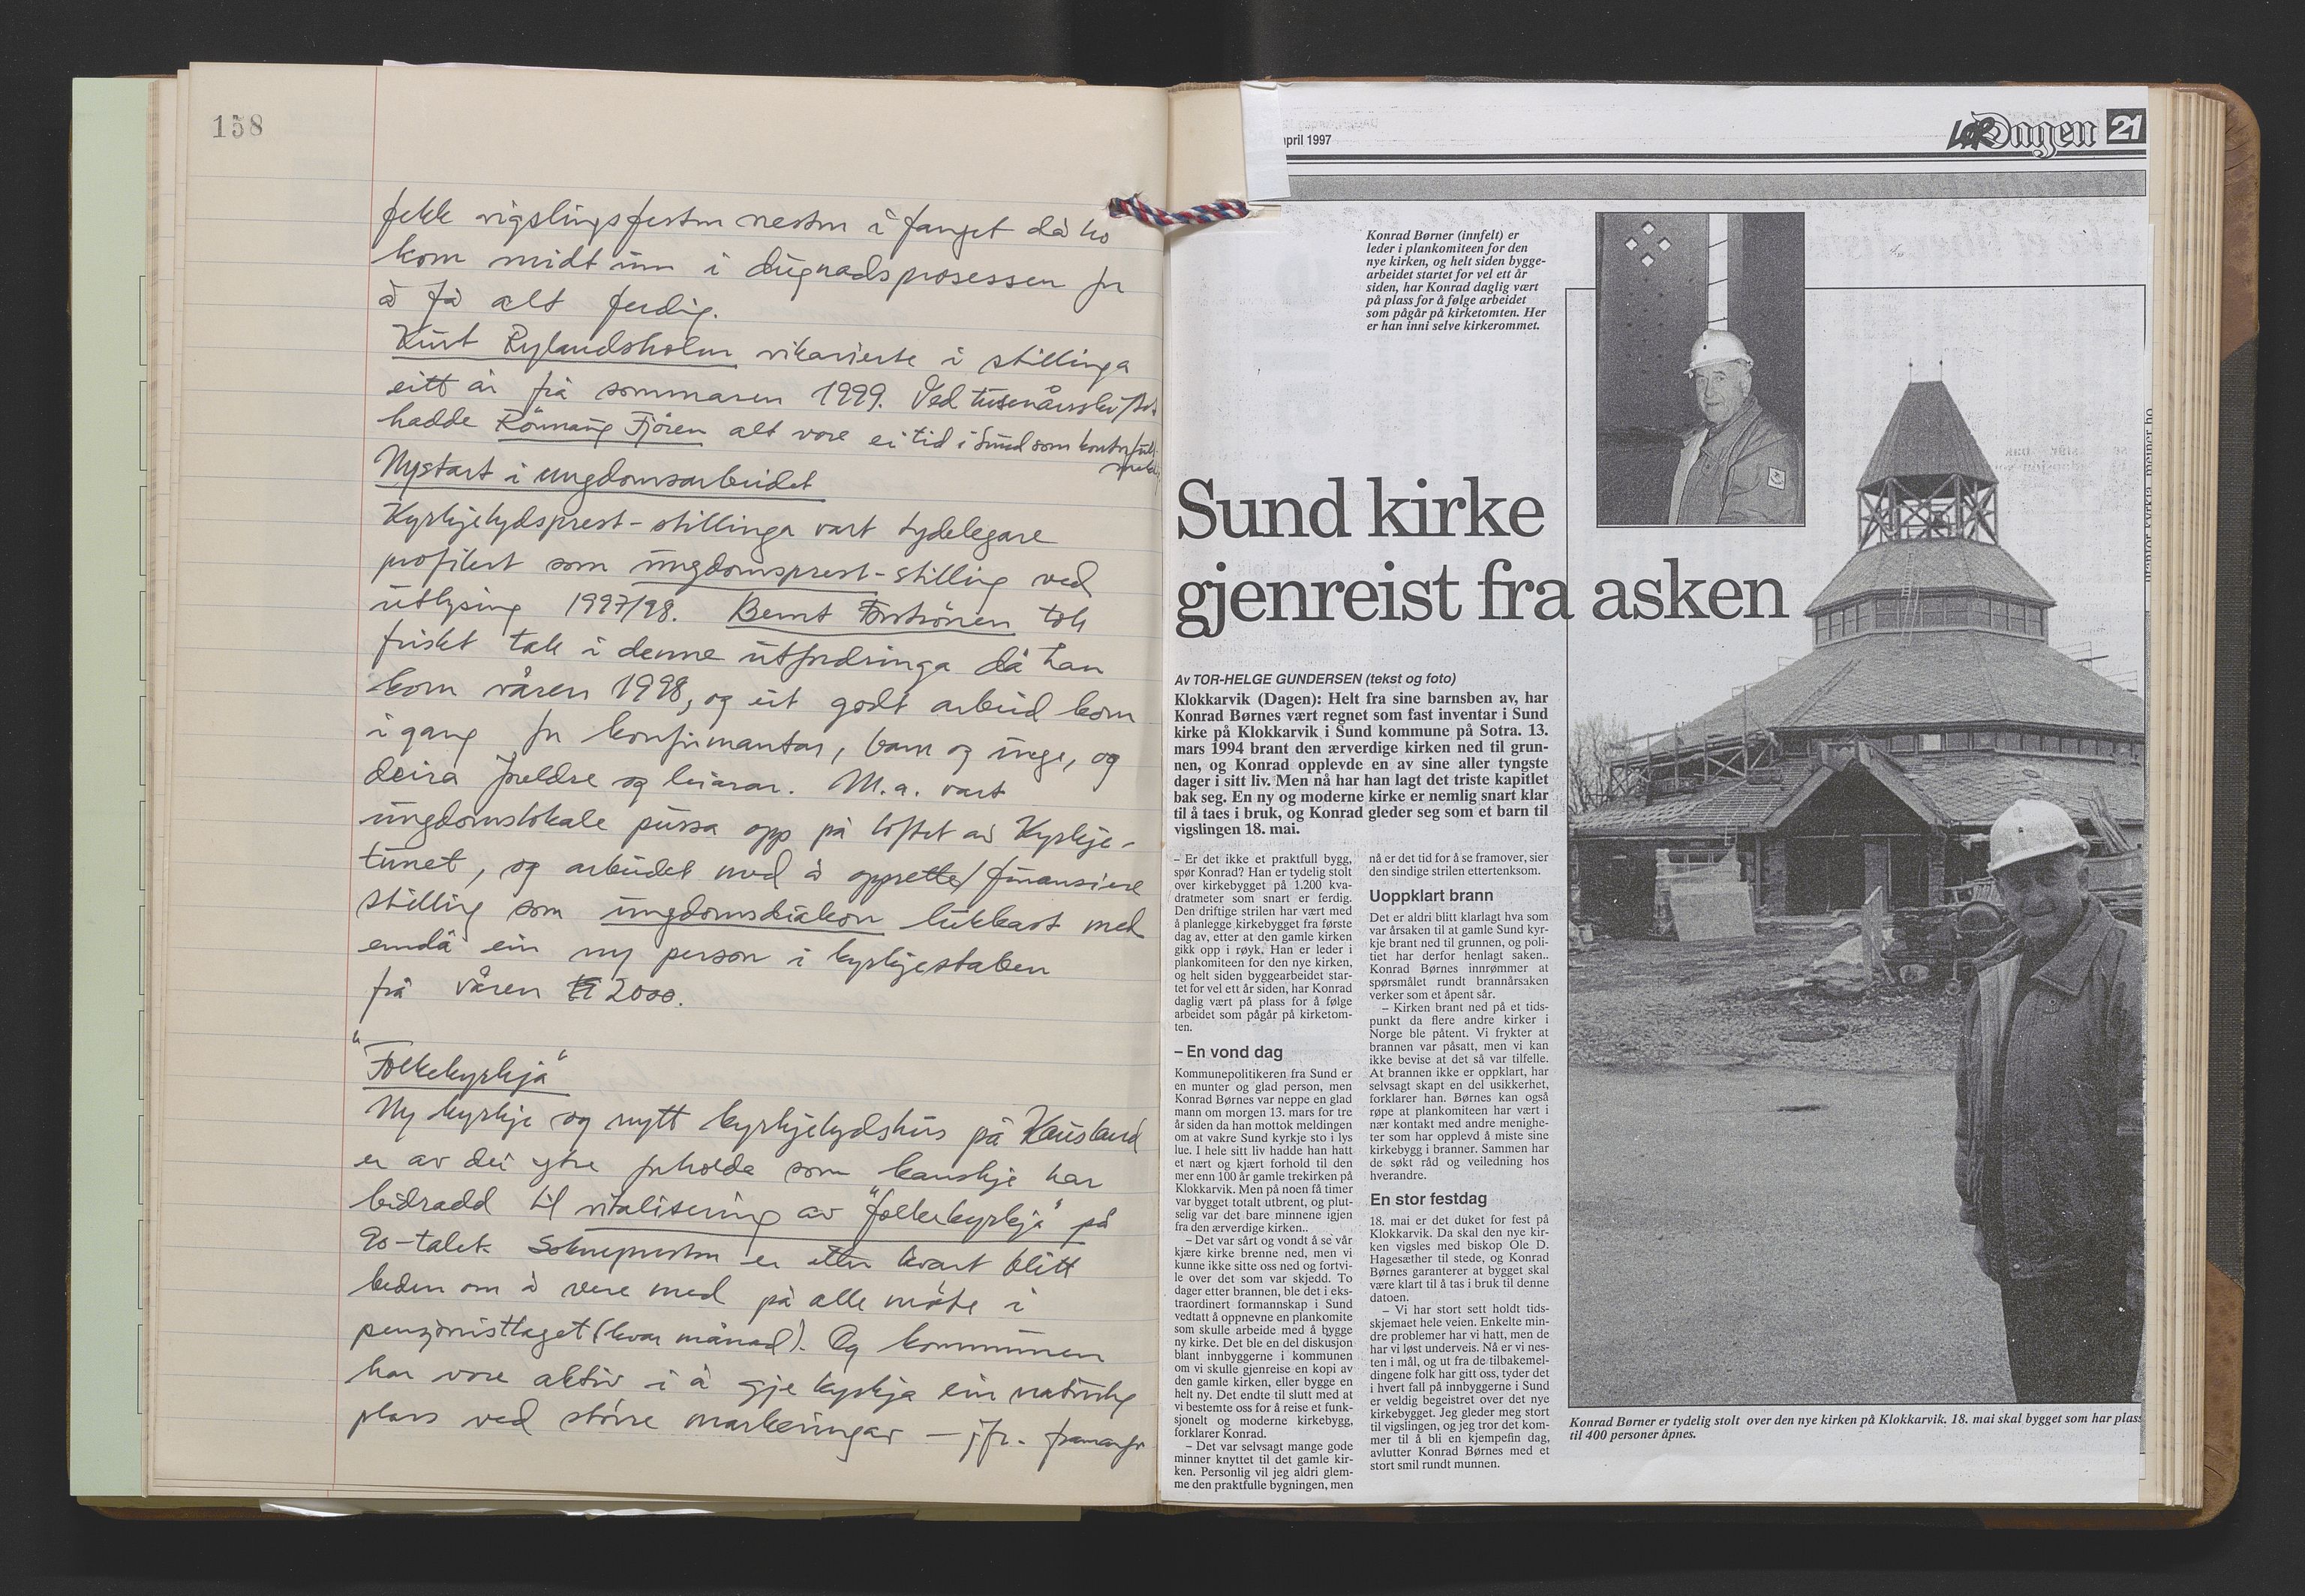 158
fekk vigslingsfesten nesten i fanget då ho
kom midt inn i dugnadsprosessen for
å få alt ferdig.
Kurt Rylandsholm vikarierte i stillinga
eitt år frå sommaren 1999. Ved tusenårsskiftet
hadde Rönnaug Fjören alt vore ei tid i Sund som
Nystart i ungdomsarbeidet
Kyrkjelydsprest-stillinga vart tydelegare
profilert som ungdomsprest-stilling ved
utlysing 1997/98. Bernt tok
friskt tak i denne utfordringa då han
kom våren 1998, og eit godt arbeid kom
i gang for konfirmantar, barn og unge, og
deira foreldre og leiarar. M.a. vart
ungdomslokale pussa opp på loftet av Kyrkje-
tunet, og arbeidet med å opprette/finansiere
stilling som ungdomsdiakon lukkast med
enndå ein ny person i kyrkjestaben
frå våren 2000.
"Folkekyrkja"
Ny kyrkje og nytt kyrkjelydshus på Kausland
er av dei ytre forholda som kanskje har
bidradd til vitalisering av "folkekyrkja" på
90-talet. Soknepresten er etter kvart blitt
beden om å vere med på alle møte i
pensjonistlaget (kvar månad). Og kommunen
har vore aktiv i å gje kyrkja ein naturleg
plass ved større markeringar – jfr. framanfor
april 1997
Dagen 21
Konrad Børner (innfelt) er
leder i plankomiteen for den
nye kirken, og helt siden bygge-
arbeidet startet for vel ett år
siden, har Konrad daglig vært
på plass for å følge arbeidet
som pågår på kirketomten. Her
er han inni selve kirkerommet.
Sund kirke
gjenreist fra asken
Av TOR-HELGE GUNDERSEN (tekst og foto)
Klokkarvik (Dagen): Helt fra sine barnsben av, har
Konrad Børnes vært regnet som fast inventar i Sund
kirke på Klokkarvik i Sund kommune på Sotra. 13.
mars 1994 brant den ærverdige kirken ned til grun-
nen, og Konrad opplevde en av sine aller tyngste
dager i sitt liv. Men nå har han lagt det triste kapitlet
bak seg. En ny og moderne kirke er nemlig snart klar
til å taes i bruk, og Konrad gleder seg som et barn til
vigslingen 18. mai.
– Er det ikke et praktfull bygg,
spør Konrad? Han er tydelig stolt
over kirkebygget på 1.200 kva-
dratmeter som snart er ferdig.
Den driftige strilen har vært med
å planlegge kirkebygget fra første
dag av, etter at den gamle kirken
gikk opp i røyk. Han er leder i
plankomiteen for den nye kirken,
og helt siden byggearbeidet star-
tet for vel ett år siden, har Konrad
daglig vært på plass for å følge
arbeidet som pågår på kirketom-
ten.
– En vond dag
Kommunepolitikeren fra Sund er
en munter og glad person, men
Konrad Børnes var neppe en glad
mann om morgen 13. mars for tre
år siden da han mottok meldingen
om at vakre Sund kyrkje sto i lys
lue. I hele sitt liv hadde han hatt
et nært og kjært forhold til den
mer enn 100 år gamle trekirken på
Klokkarvik. Men på noen få timer
var bygget totalt utbrent, og plut-
selig var det bare minnene igjen
fra den ærverdige kirken..
– Det var sårt og vondt å se vår
kjære kirke brenne ned, men vi
kunne ikke sitte oss ned og fortvi-
le over det som var skjedd. To
dager etter brannen, ble det i eks-
traordinert formannskap i Sund
vedtatt å oppnevne en plankomite
som skulle arbeide med å bygge
ny kirke. Det ble en del diskusjon
blant innbyggerne i kommunen
om vi skulle gjenreise en kopi av
den gamle kirken, eller bygge en
helt ny. Det endte til slutt med at
vi bestemte oss for å reise et funk-
sjonelt og moderne kirkebygg,
forklarer Konrad.
– Det var selvsagt mange gode
minner knyttet til det gamle kir-
ken. Personlig vil jeg aldri glem-
me den praktfulle bygningen, men
nå er det tid for å se framover, sier
den sindige strilen ettertenksom.
Uoppklart brann
Det er aldri blitt klarlagt hva som
var årsaken til at gamle Sund kyr-
kje brant ned til grunnen, og poli-
tiet har derfor henlagt saken..
Konrad Børnes innrømmer at
spørsmålet rundt brannårsaken
verker som et åpent sår.
– Kirken brant ned på et tids-
punkt da flere andre kirker i
Norge ble påtent. Vi frykter at
brannen var påsatt, men vi kan
ikke bevise at det så var tilfelle.
At brannen ikke er oppklart, har
selvsagt skapt en del usikkerhet,
forklarer han. Børnes kan også
røpe at plankomiteen har vært i
nær kontakt med andre menighe-
ter som har opplevd å miste sine
kirkebygg i branner. Sammen har
de søkt råd og veiledning hos
hverandre.
En stor festdag
18. mai er det duket for fest på
Klokkarvik. Da skal den nye kir-
ken vigsles med biskop Ole D.
Hagesæther til stede, og Konrad
Børnes garanterer at bygget skal
være klart til å tas i bruk til denne
datoen.
– Vi har stort sett holdt tids-
skjemaet hele veien. Enkelte min-
dre problemer har vi hatt, men de
har vi løst underveis. Nå er vi nes-
ten i mål, og ut fra de tilbakemel-
dingene folk har gitt oss, tyder det
i hvert fall på innbyggerne i Sund
er veldig begeistret over det nye
kirkebygget. Jeg gleder meg stort
til vigslingen, og jeg tror det kom-
mer til å bli en kjempefin dag,
avlutter Konrad Børnes med et
stort smil rundt munnen.
Konrad Børner er tydelig stolt over den nye kirken på Klokkarvik. 18. mai skal bygget som har plass
til 400 personer åpnes.